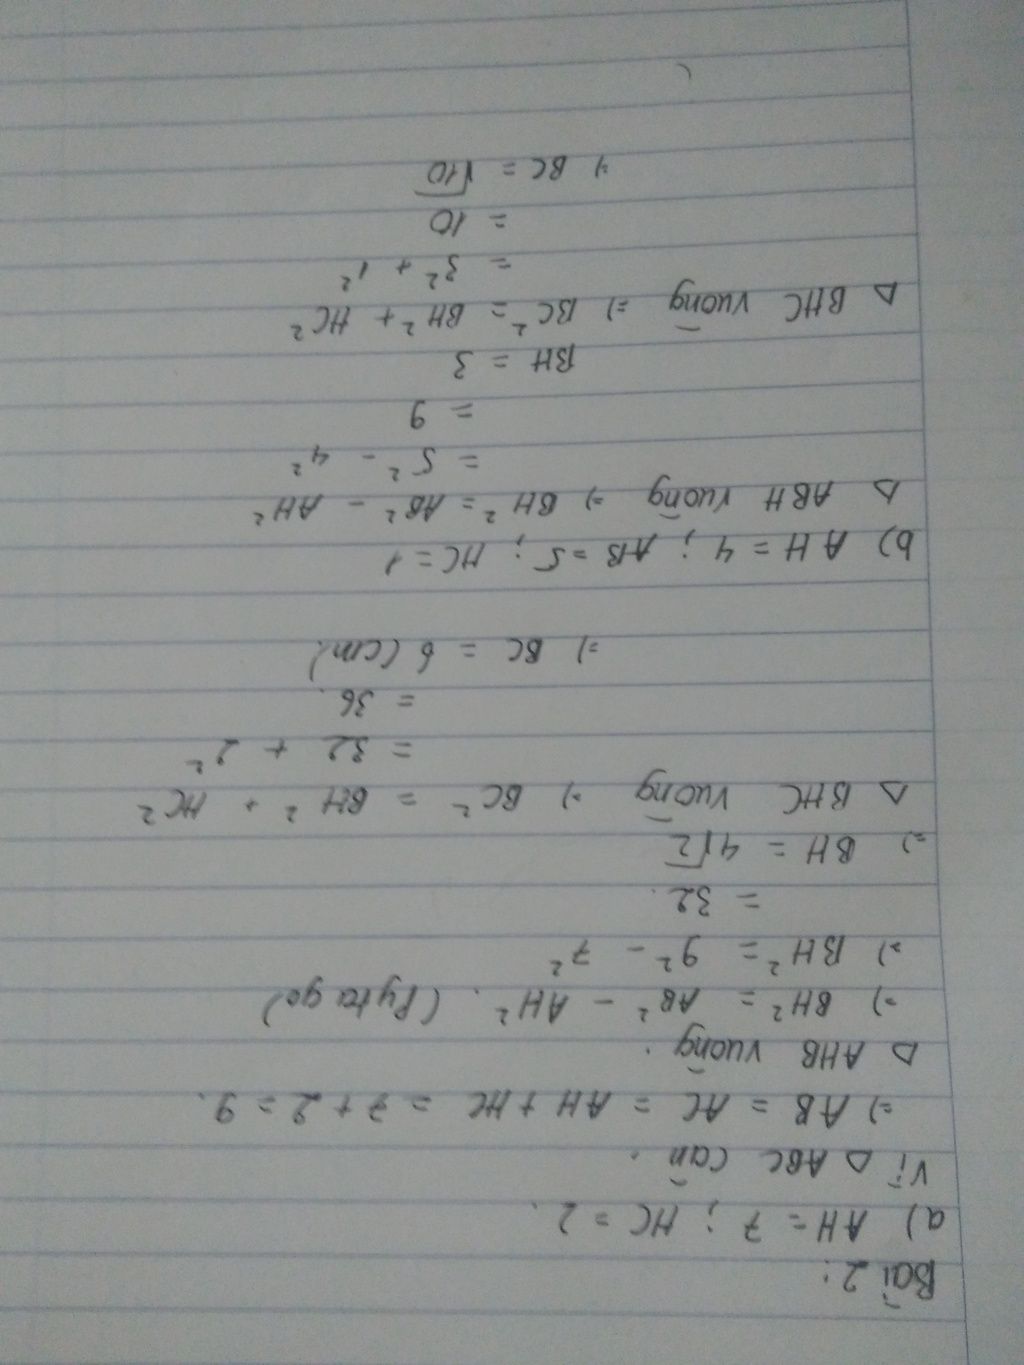 Bài 2:
a) AH = 7 ; HC = 2.
Vì Δ ABC cân.
=) AB = AC = AH + HC = 7 + 2 = 9.
Δ AHB vuông.
=) BH² = AB² - AH². (Pytago)
=) BH² = 9² - 7²
= 32.
=) BH = 4√2
Δ BHC vuông =) BC² = BH² + HC²
= 32 + 2²
= 36.
=) BC = 6 (cm)
b) AH = 4 ; AB = 5 ; HC = 1
Δ ABH vuông =) BH² = AB² - AH²
= 5² - 4²
= 9
BH = 3
Δ BHC vuông =) BC² = BH² + HC²
= 3² + 1²
= 10
=) BC = √10